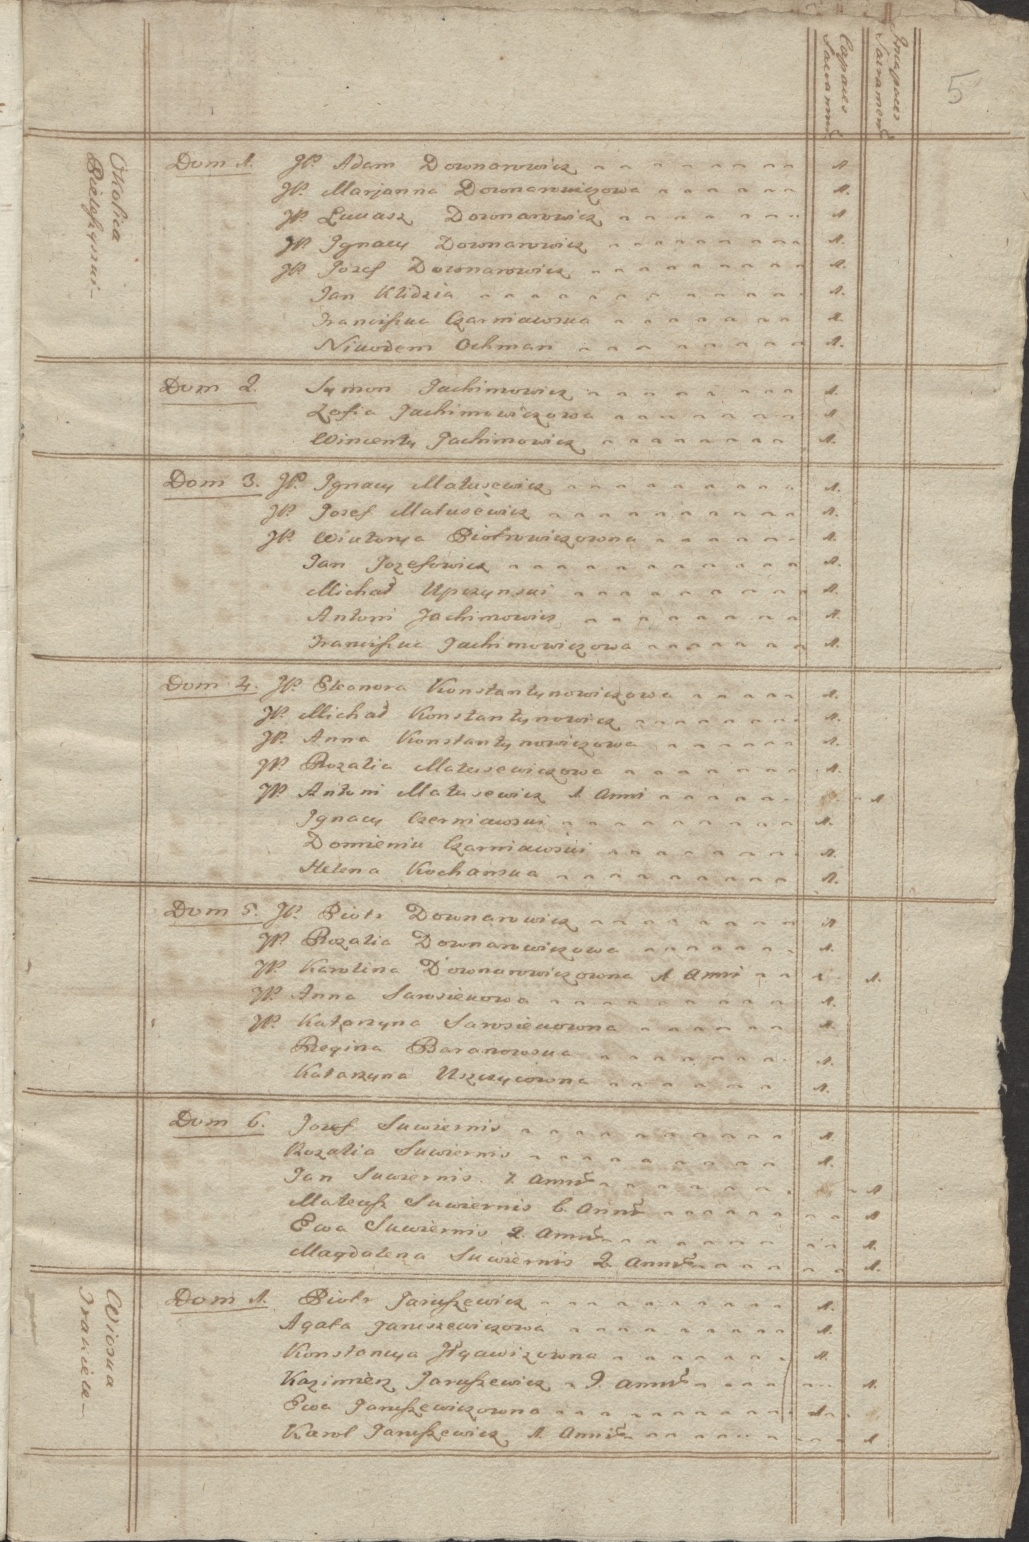 Capaces Sacramti
Incapaces Sacramenti
5
Okolica
Dom 1. JP. Adam Downarowicz 1.
JP. Marjanna Downarowiczowa 1.
JP. Łukasz Downarowicz 1
JP. Ignacy Downarowicz 1.
JP. Jozef Downarowicz 1.
Jan Kudzia 1.
Franciszka Czarniawska 1.
Nikodem Ochman 1.
Dom 2. Symon Jachimowicz 1.
Zofia Jachimowiczowa 1.
Wincenty Jachimowicz 1.
Dom 3. JP. Ignacy Matusewicz 1.
JP. Jozef Matusewicz 1.
JP. Wiktorya Piotrowiczowna 1.
Jan Jozefowicz 1.
Michał 1.
Antoni Jachimowicz 1.
Franciszka Jachimowiczowa 1.
Dom 4. JP. Eleonora Konstantynowiczowa 1.
JP. Michał Konstantynowicz 1.
JP. Anna Konstantynowiczowa 1.
JP. Rozalia Matusewiczowa 1.
JP. Antoni Matusewicz 1. Anni 1
Ignacy Czerniawski 1.
Dominik Czarniawski 1.
Helena Kochanska 1.
Dom 5. JP. Piotr Downarowicz 1
JP. Rozalia Downarowiczowa 1.
JP. Karolina Downarowiczowna 1 Anni 1.
JP. Anna Sawsienowa 1.
JP. Katarzyna Sawsienowna 1.
Regina Baranowska 1.
Katarzyna 1.
Dom 6. Jozef Suwiernis 1.
Rozalia Suwiernis 1.
Jan Suwiernis 7. Anno 1
Mateusz Suwiernis 6. Anno 1
Ewa Suwiernis 2. Anno 1.
Magdalena Suwiernis 2. Anno 1.
Wioska
Dom 1. Piotr Januszewicz 1.
Agata Januszewiczowa 1.
Konstancya 1.
Kazimierz Januszewicz 9. Anno 1.
Ewa Januszewiczowna 1.
Karol Januszewicz 1. Anni 1